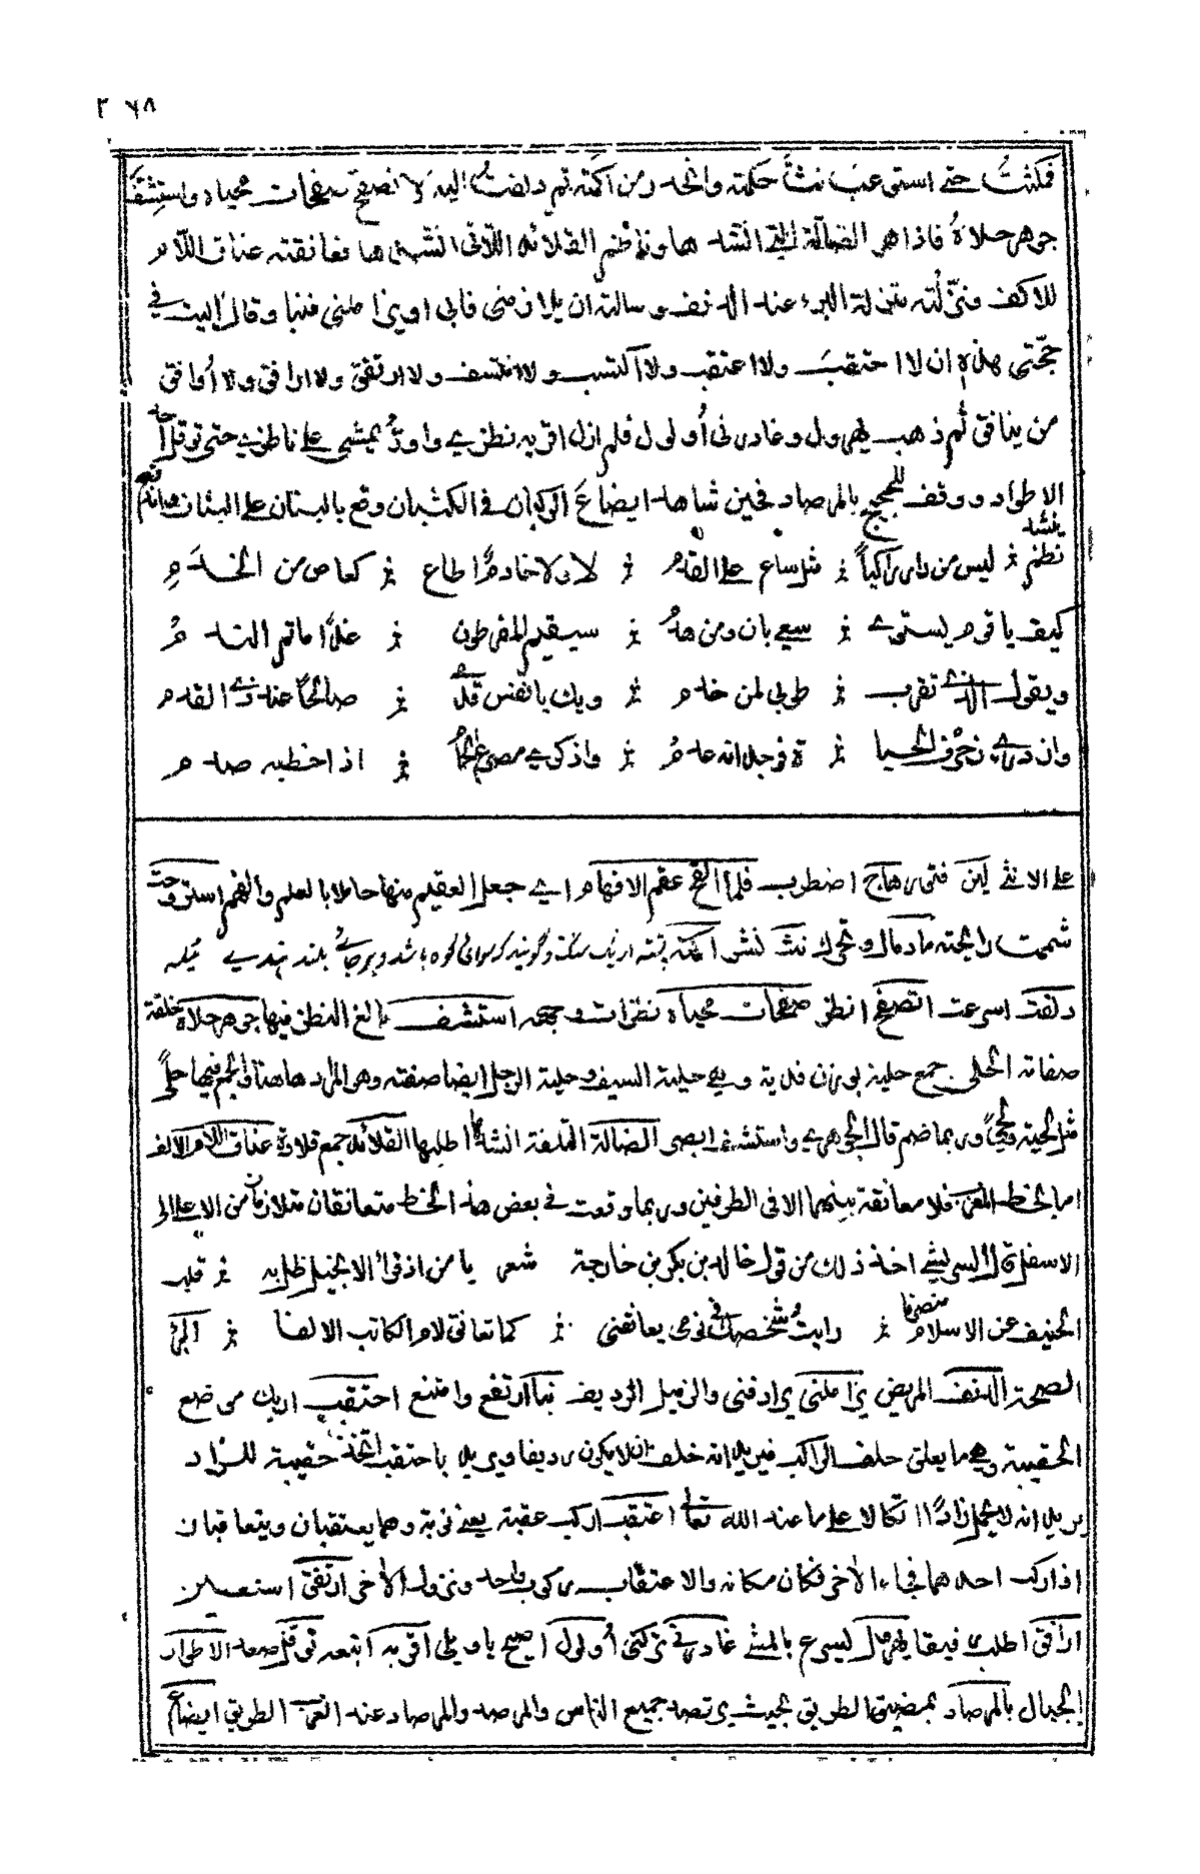 ٣٦٨
فمكثت حتى استوعب نث حكمته وانحدر من اكمته ثم دلفت اليه لا تصفح صفحات محياه واستشف
جوهر حلاه فاذا هو الضالة التى انشدها وناظم القلائد اللاتى انشدها فعانقته عناق اللام
للالف ونزلته منزلة البرء عند الدنف وسالته ان يلازمنى فابى او يزاملنى فنبا وقال اليت فى
حجتى هذه ان لا احتقب ولا اعتقب ولا اكتسب ولا انتسب ولا ارتفق ولا ارافق ولا اوافق
من ينافق ثم ذهب يهرول وغادرنى اولول فلم ازل اقريه نظرى واود لو يمشى على ناظرى حتى توقل احد
الاطواد ووقف للحجيج بالمرصاد فحين شاهد ايضاع الركبان فى الكثبان وقع بالبنان على البنان واندفع
ينشد
نظم ليس من زار راكبا مثل ساع على القدم لا ولا خادم اطاع كعاص من الخدم
كيف يا قوم يستوى سعى بان ومن هدم سيقيم المفرطون غدا ماتم الندم
ويقول الذى تقرب طوبى لمن خدم ويك يا نفس قدمى صالحا عند ذى القدم
وازدرى زخرف الحيا ة فوجدانه عدم واذكرى مصرع الحمام اذا خطبه صدم
على الانثى لين فتى هاج اضطرب فلما القح عقم الافهام اى جعل العقيم منها حاملا بالعلم والفهم استروحت
شممت رائحته ماد مال وتحرك نث نشر اكمته
دلفت اسرعت اتصفح انظر صفحات محياه نظرات وجهه استشف ابالغ النظر فيها جوهر حلاه خلقة
صفاته الحلى جمع حلية بوزن فدية وهى حلية السيف وحلية الرجل ايضا صفته وهو المراد هاهنا والجمع فيها حلى
مثل لحية ولحى وربما ضم قال الجوهرى واستشف ابصر الضالة التلفة انشدها اطلبها القلائد جمع قلادة عناق اللام الالف
اما بخط المغرب فلا معانقة بينهما الا فى الطرفين وربما وقعت فى بعض هذا الخط متعانقان متلازمان من الاعلى الى
الاسفل اخذ ذلك من قول خالد بن بكر بن خارجة شعر يا من اذا قرأ الانجيل ظل به قلب
الحنيف عن الاسلام منصرفا رايت شخصك فى نومى يعانقنى كما تعانق لام الكاتب الالفا البرء
الصحة الدنف المريض يزاملنى يرادفنى والزميل الرديف نبا ارتفع وامتنع احتقب اركب موضع
الحقيبة وهى ما يعلق خلف الراكب فيريد انه حلف ان لا يكون رديفا ويريد باحتقب اتخذ حقيبة للزاد
يريد انه لا يحمل زادا اتكالا على ما عند الله تعالى اعتقب اركب عقبة يعنى نوبة وهما يعتقبان ويتعاقبان
اذا ركب احدهما فجاء الاخر فكان مكانه والاعتقاب ركوب واحد ونزول الاخر ارتفق استعين
ارافق اطلب رفيقا يهرول يسرع بالمشى غادرنى تركنى اولول اصيح يا ويلى اقريه اتبعه توقل صعد الاطواد
الجبال بالمرصاد بمضيق الطريق بحيث يرتصد جميع الناس والمرصد والمرصاد عند العرب الطريق ايضاع